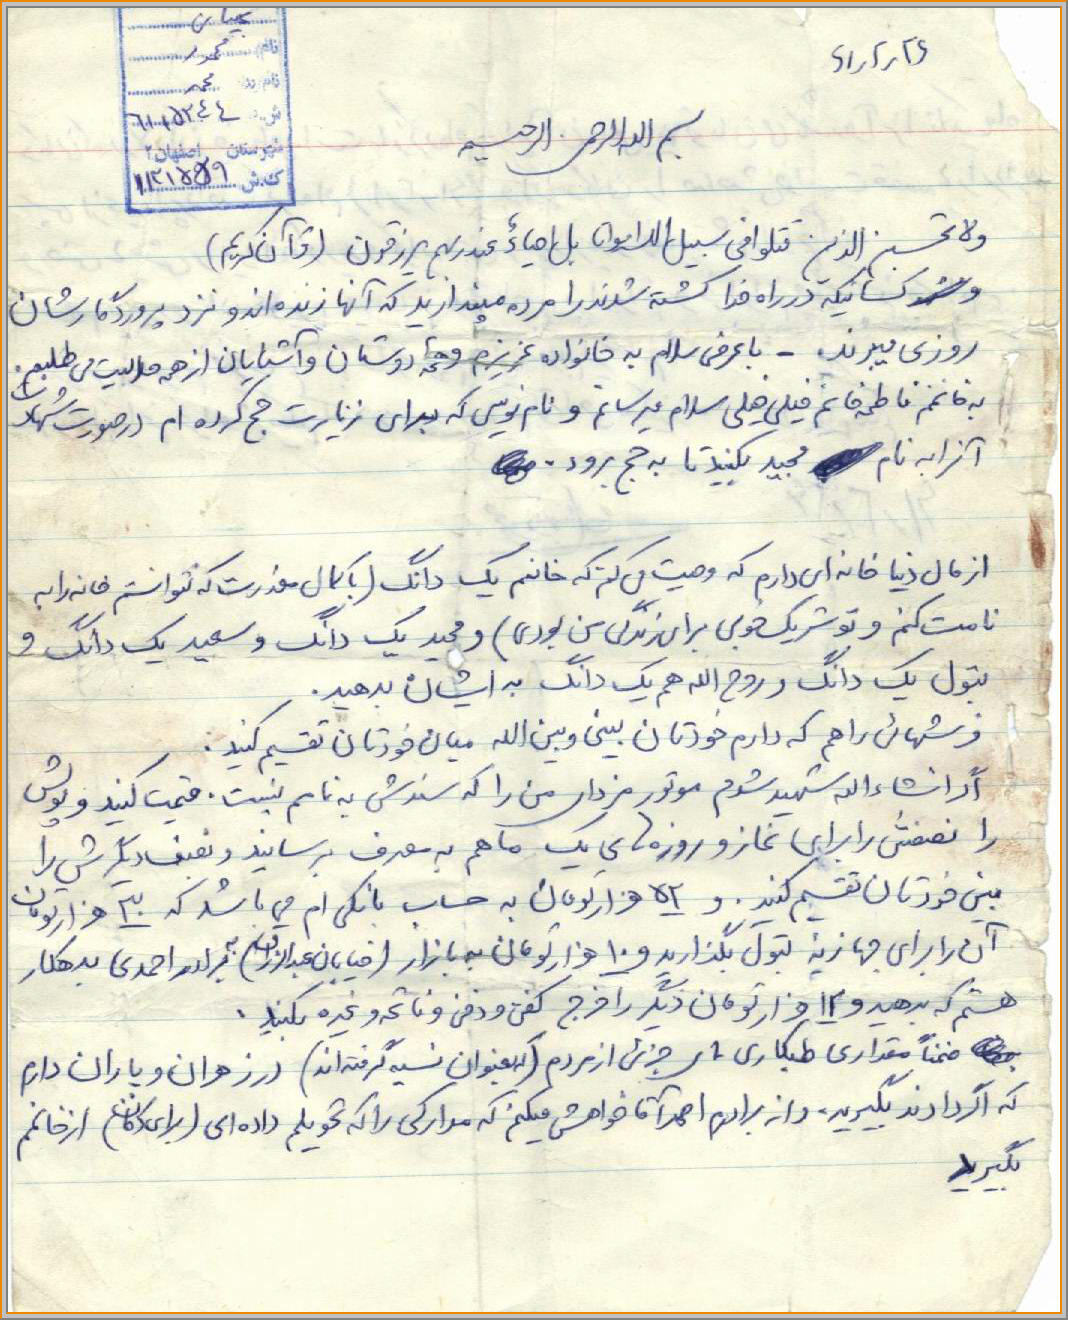 ۶۱/۲/۲۶
نام: محمود
نام پدر: محمد
ش.پ: ۶۱۰۱۵۲۴۴
شهرستان اصفهان ۲
کد.ش ۱۱۲۱۷۵۵۹
بسم الله الرحمن الرحیم
ولا تحسبن الذین قتلوا فی سبیل الله امواتا بل احیاءٌ عند ربهم یرزقون (قرآن کریم)
و کسانیکه در راه خدا کشته شدند را مرده مپندارید که آنها زنده اند و نزد پروردگارشان
روزی میبرند - با عرض سلام به خانواده عزیزم و همهٔ دوستان و آشنایان از همه حلالیت می طلبم.
به خانمم فاطمه خانم خیلی خیلی سلام میرسانم و نام نویسی که برای زیارت حج کرده ام در صورت شهادت
آنرا به نام مجید بکنید تا به حج برود.
از مال دنیا خانه ای دارم که وصیت می کنم که خانمم یک دانگ (با کمال معذرت که نتوانستم خانه را به
نامت کنم و تو شریک خوبی برای زندگی من بودی) و مجید یک دانگ و سعید یک دانگ و
بتول یک دانگ و روح الله هم یک دانگ به ایشان بدهید.
فرشهائی را هم که دارم خودتان بینی و بین الله میان خودتان تقسیم کنید.
اگر انشاءالله شهید شدم موتور من را که سندش به نامم نیست. قیمت کنید و پولش
را نصفش را برای نماز و روزه های یک ماهم به مصرف برسانید و نصف دیگرش را
بین خودتان تقسیم کنید. و ۵۲ هزار تومان به حساب بانکی ام می باشد که ۳۰ هزار تومان
آن را برای جهازیهٔ بتول بگذارید و ۱۰ هزار تومان به بازار (خیابان عبدالرزاق) به برادر احمدی بدهکار
هستم که بدهید و ۱۲ هزار تومان دیگر را خرج کفن و دفن و فاتحه و غیره بکنید.
ضمناً مقداری طلبکاری جزئی از مردم (که بعنوان نسیه گرفته اند) در زهران و یاران دارم
که اگر دادند بگیرید. و از برادرم احمد آقا خواهش میکنم که مدارکی را که تحویلم داده ای (برای دکان) از خانمم
بگیرید